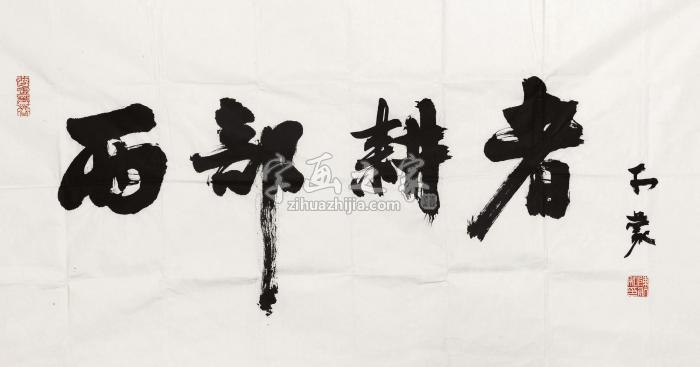 西部耕者
石蒙
字画之家
zihuazhijia.com